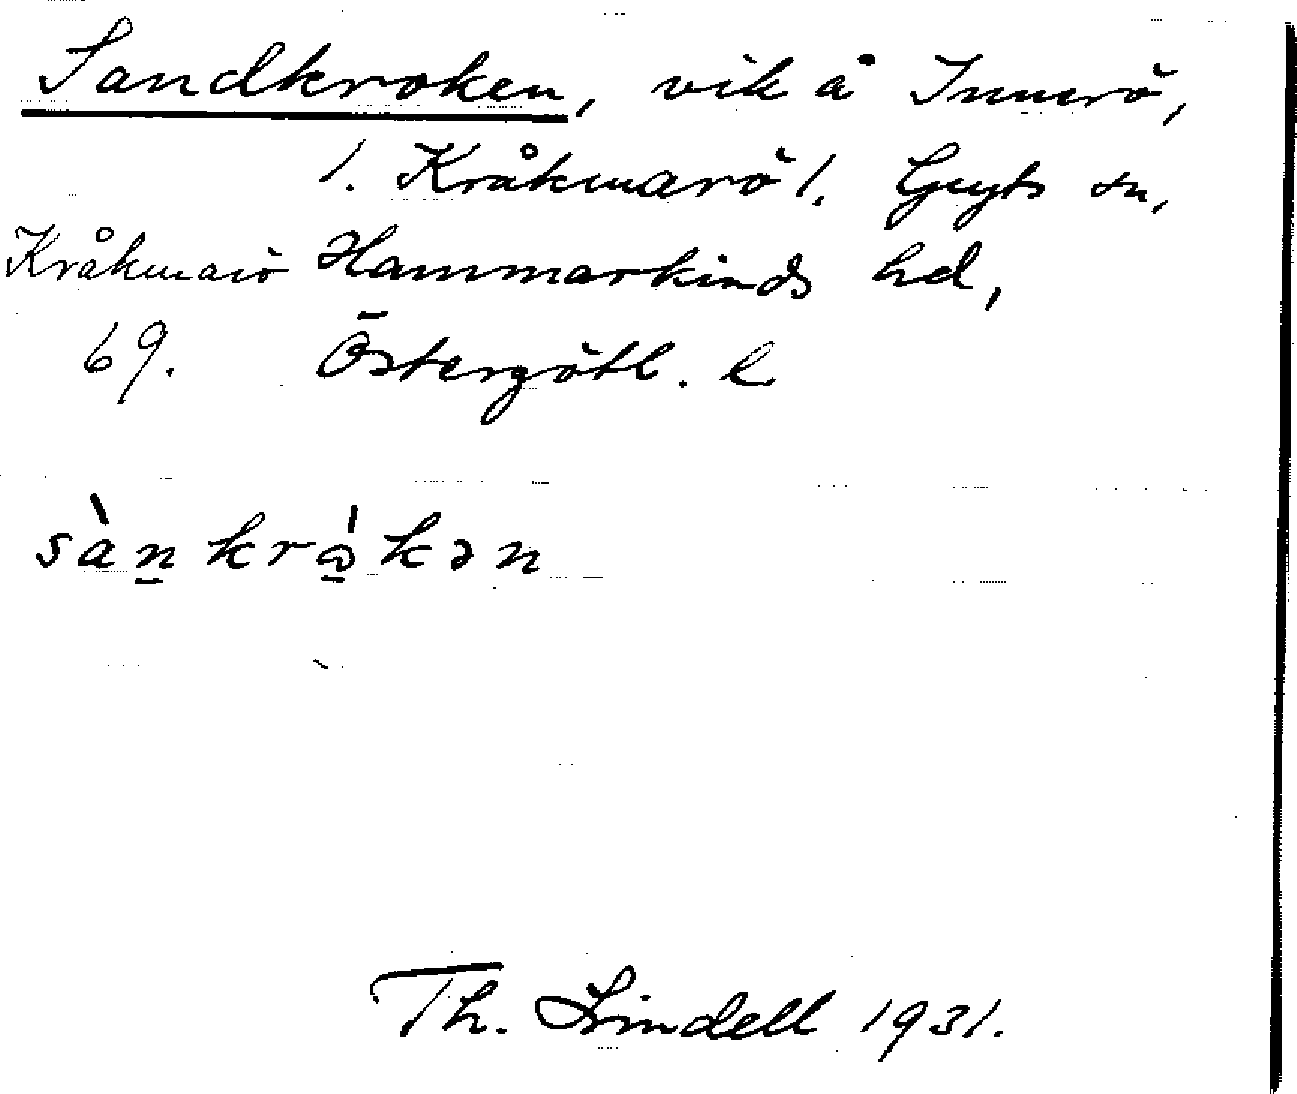 Sandkroken, vik å Innerö,
1. Kråkmarö 1. Gryts sn,
Kråkmarö Hammarkinds hd,
69. Östergötl. l
sàn̠krò̠kən
Th. Lindell 1931.